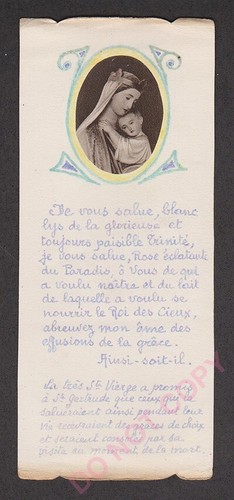 Je vous salue, blanc
lys de la glorieuse et
toujours paisible Trinité,
je vous salue, Rose éclatante
du Paradis, ô Vous de qui
a voulu naître et du lait
de laquelle a voulu se
nourrir le Roi des Cieux,
abreuvez mon âme des
effusions de la grâce.
Ainsi-soit-il.
La Très Ste Vierge a promis
à Ste Gertrude que ceux qui la
salueraient ainsi pendant leur
vie recevraient des grâces de choix
et seraient par sa
visite au moment de la mort.
DO NOT COPY